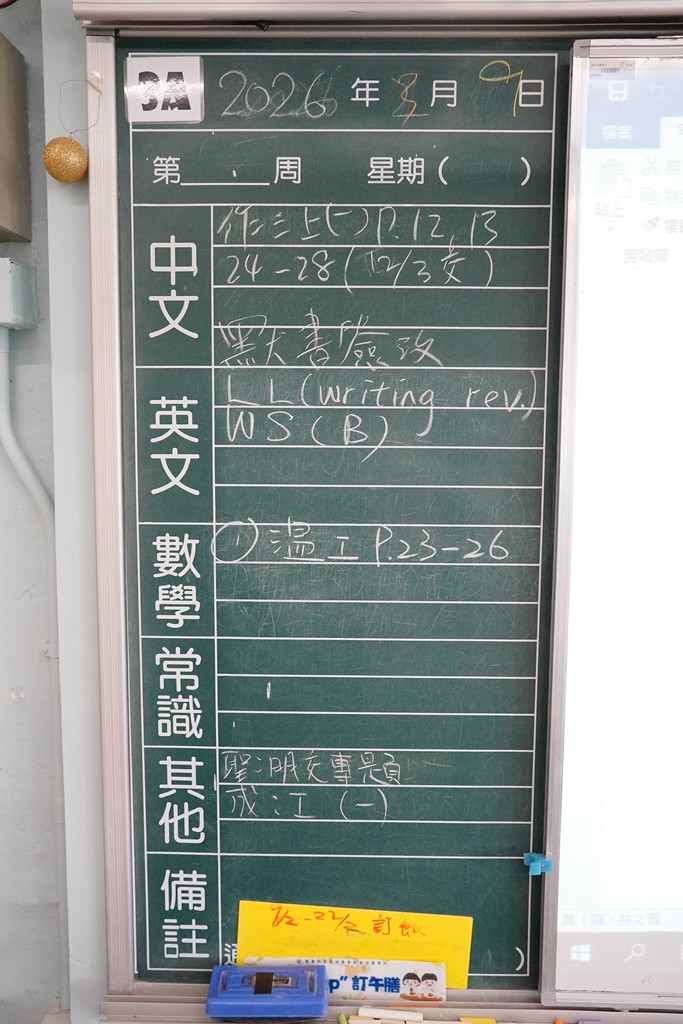 3A 2026年3月9日
第 周 星期( )
中文
作三上(一)P.12,13
24-28(12/3交)
默書簽改
英文
LL(writing rev.)
WS(B)
數學
① 溫工 P.23-26
常識
其他
聖:明交專題
成:工(一)
備註
訂飯
p" 訂午膳
檔案
貼上
剪貼簿
第1頁,共2頁